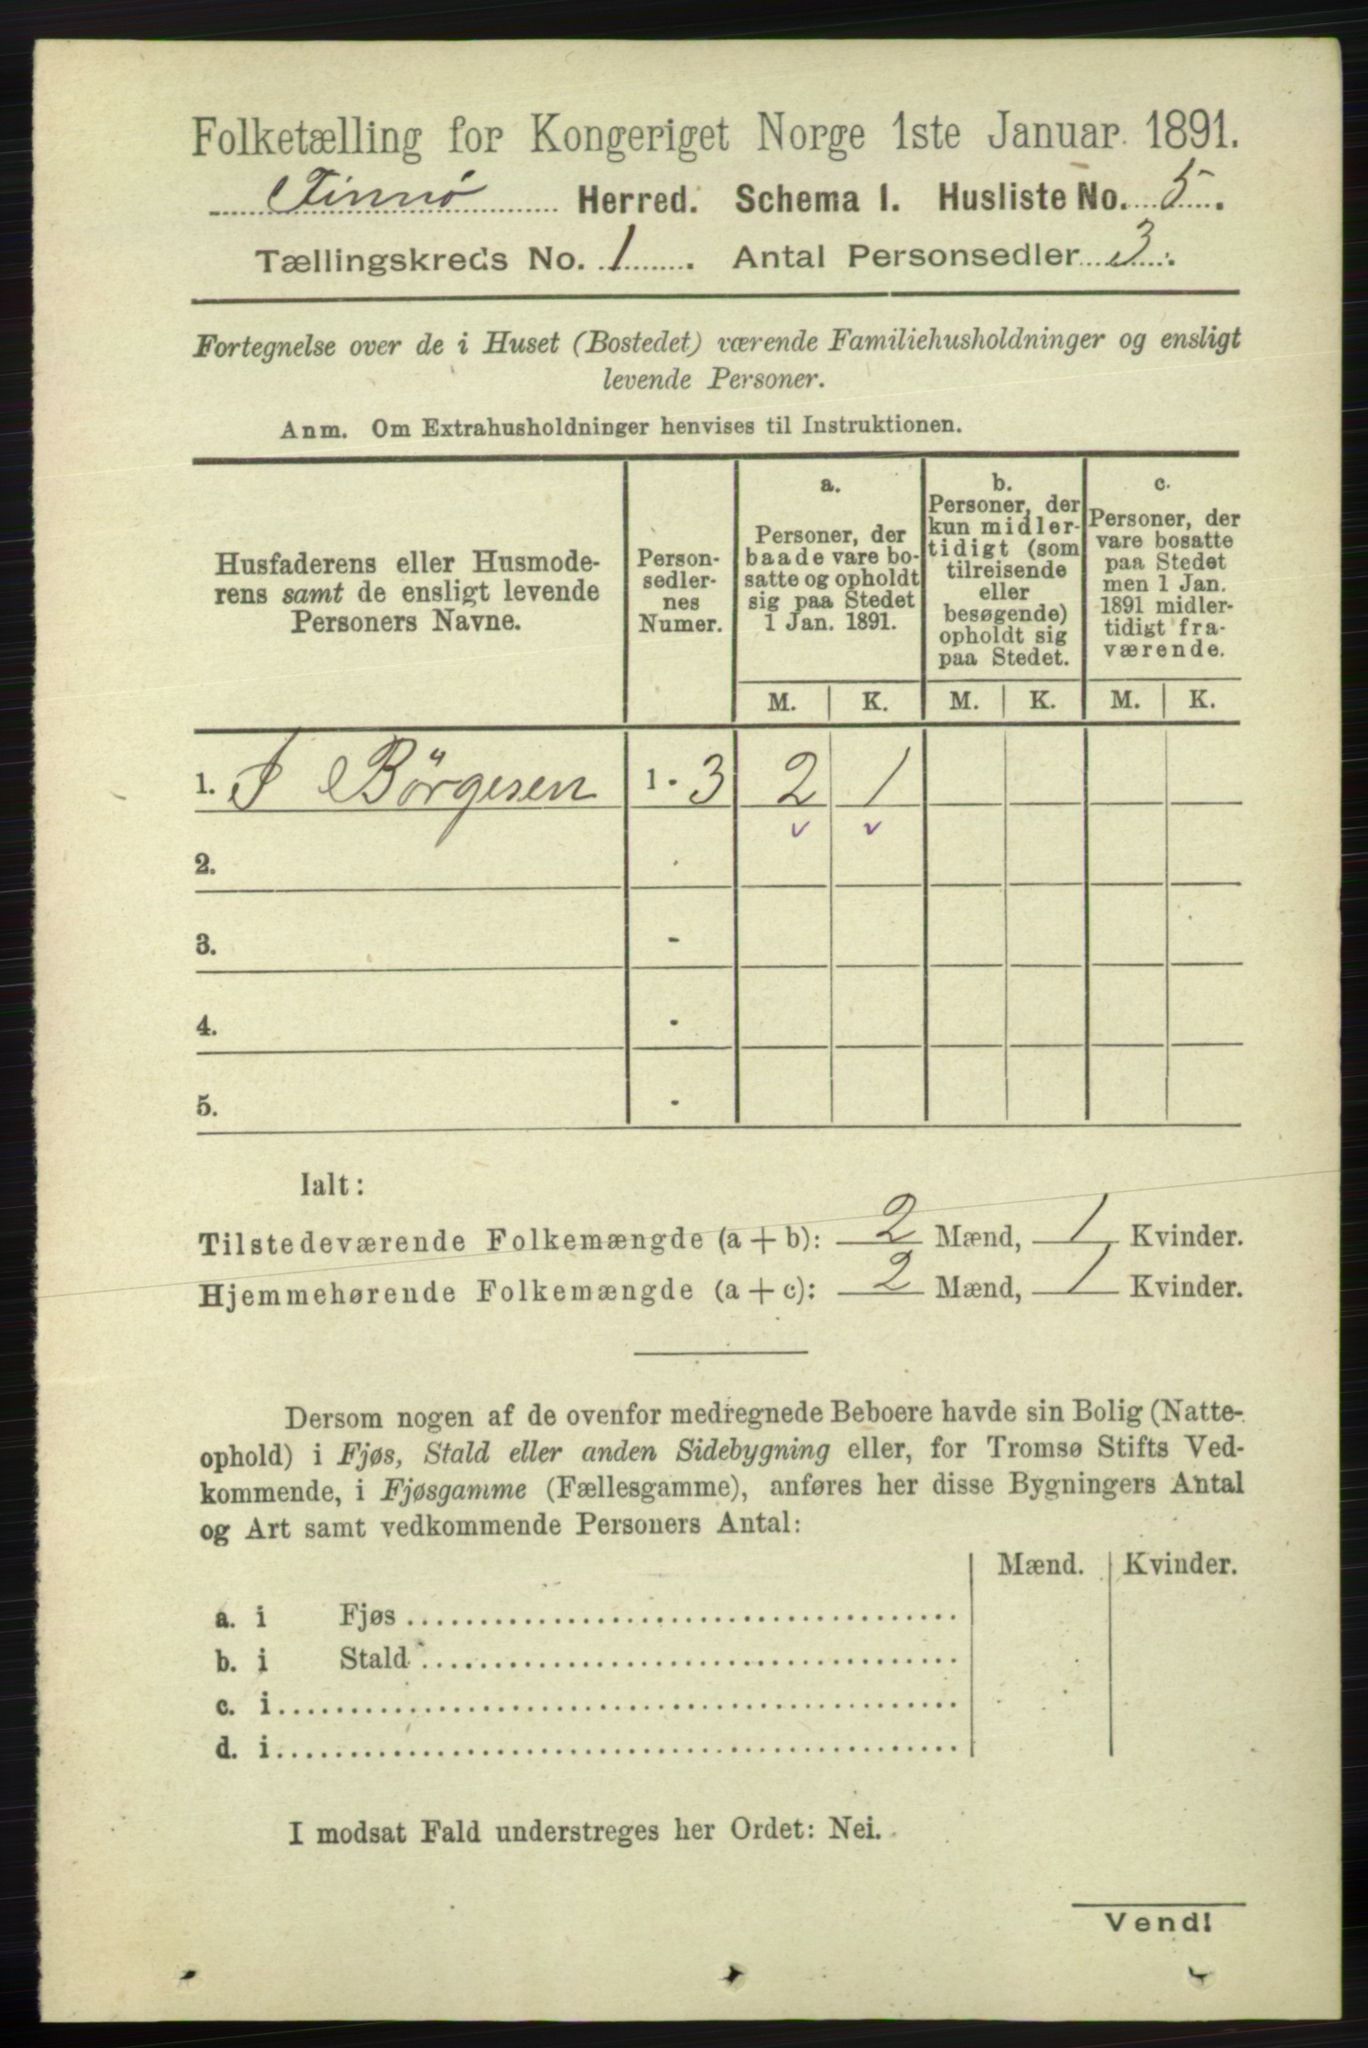 Folketælling for Kongeriget Norge 1ste Januar 1891.
Finnö Herred. Schema I. Husliste No. 5.
Tællingskreds No. 1. Antal Personsedler 3.
Fortegnelse over de i Huset (Bostedet) værende Familiehusholdninger og ensligt
levende Personer.
Anm. Om Extrahusholdninger henvises til Instruktionen.
Husfaderens eller Husmode-
rens samt de ensligt levende
Personers Navne.
Person-
sedler-
nes
Numer.
a.
Personer, der
baade vare bo-
satte og opholdt
sig paa Stedet
1 Jan. 1891.
b.
Personer, der
kun midler-
tidigt (som
tilreisende
eller
besøgende)
opholdt sig
paa Stedet.
c.
Personer, der
vare bosatte
paa Stedet
men 1 Jan.
1891 midler-
tidigt fra-
værende.
M. K. M. K. M. K.
1. Börgesen 1 - 3 2 1
2. -
3. -
4. -
5. -
Ialt:
Tilstedeværende Folkemængde (a + b): 2 Mænd, 1 Kvinder.
Hjemmehørende Folkemængde (a + c): 2 Mænd, 1 Kvinder.
Dersom nogen af de ovenfor medregnede Beboere havde sin Bolig (Natte-
ophold) i Fjøs, Stald eller anden Sidebygning eller, for Tromsø Stifts Ved-
kommende, i Fjøsgamme (Fællesgamme), anføres her disse Bygningers Antal
og Art samt vedkommende Personers Antal:
Mænd. Kvinder.
a. i Fjøs
b. i Stald
c. i
d. i
I modsat Fald understreges her Ordet: Nei.
Vend!